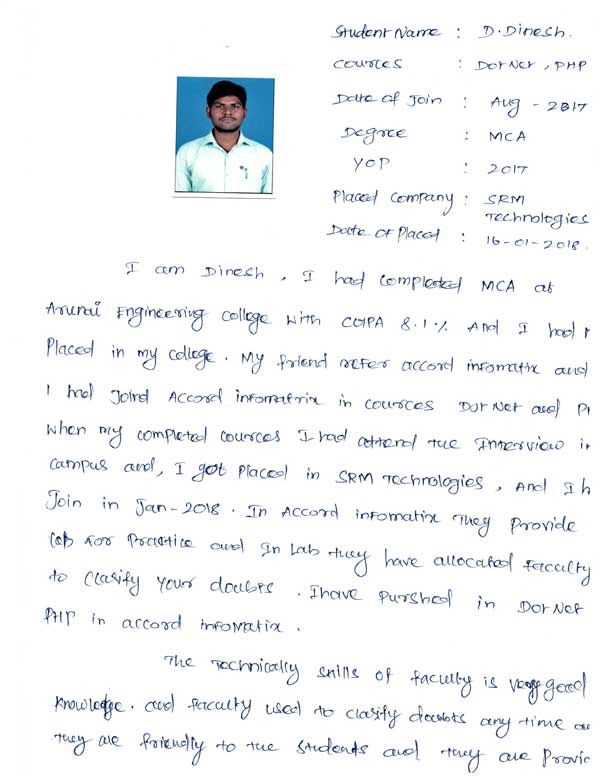 Student Name : D. Dinesh.
Cources : Dot Net, PHP
Date of Join : Aug - 2017
Degree : MCA
YOP : 2017
Placed Company : SRM
Technologies
Date of Placed : 16-01-2018.
I am Dinesh, I had completed MCA at
Arunai Engineering college with CGPA 8.1%. And I had
Placed in my college. My friend refer accord infomatix and
I had Joind Accord infomatrix in cources Dot Net and
when my completed cources I had attend the Interview
campus and, I got placed in SRM Technologies, And I
Join in Jan-2018. In Accord infomatix They Provide
lab for Practice and In Lab they have allocated faculty
to clarify your doubts. I have purshed in Dot Net
PHP in accord infomatix.
The Technically skills of faculty is very good
knowledge. and faculty used to clarify doubts any time
they are friendly to the students and they are